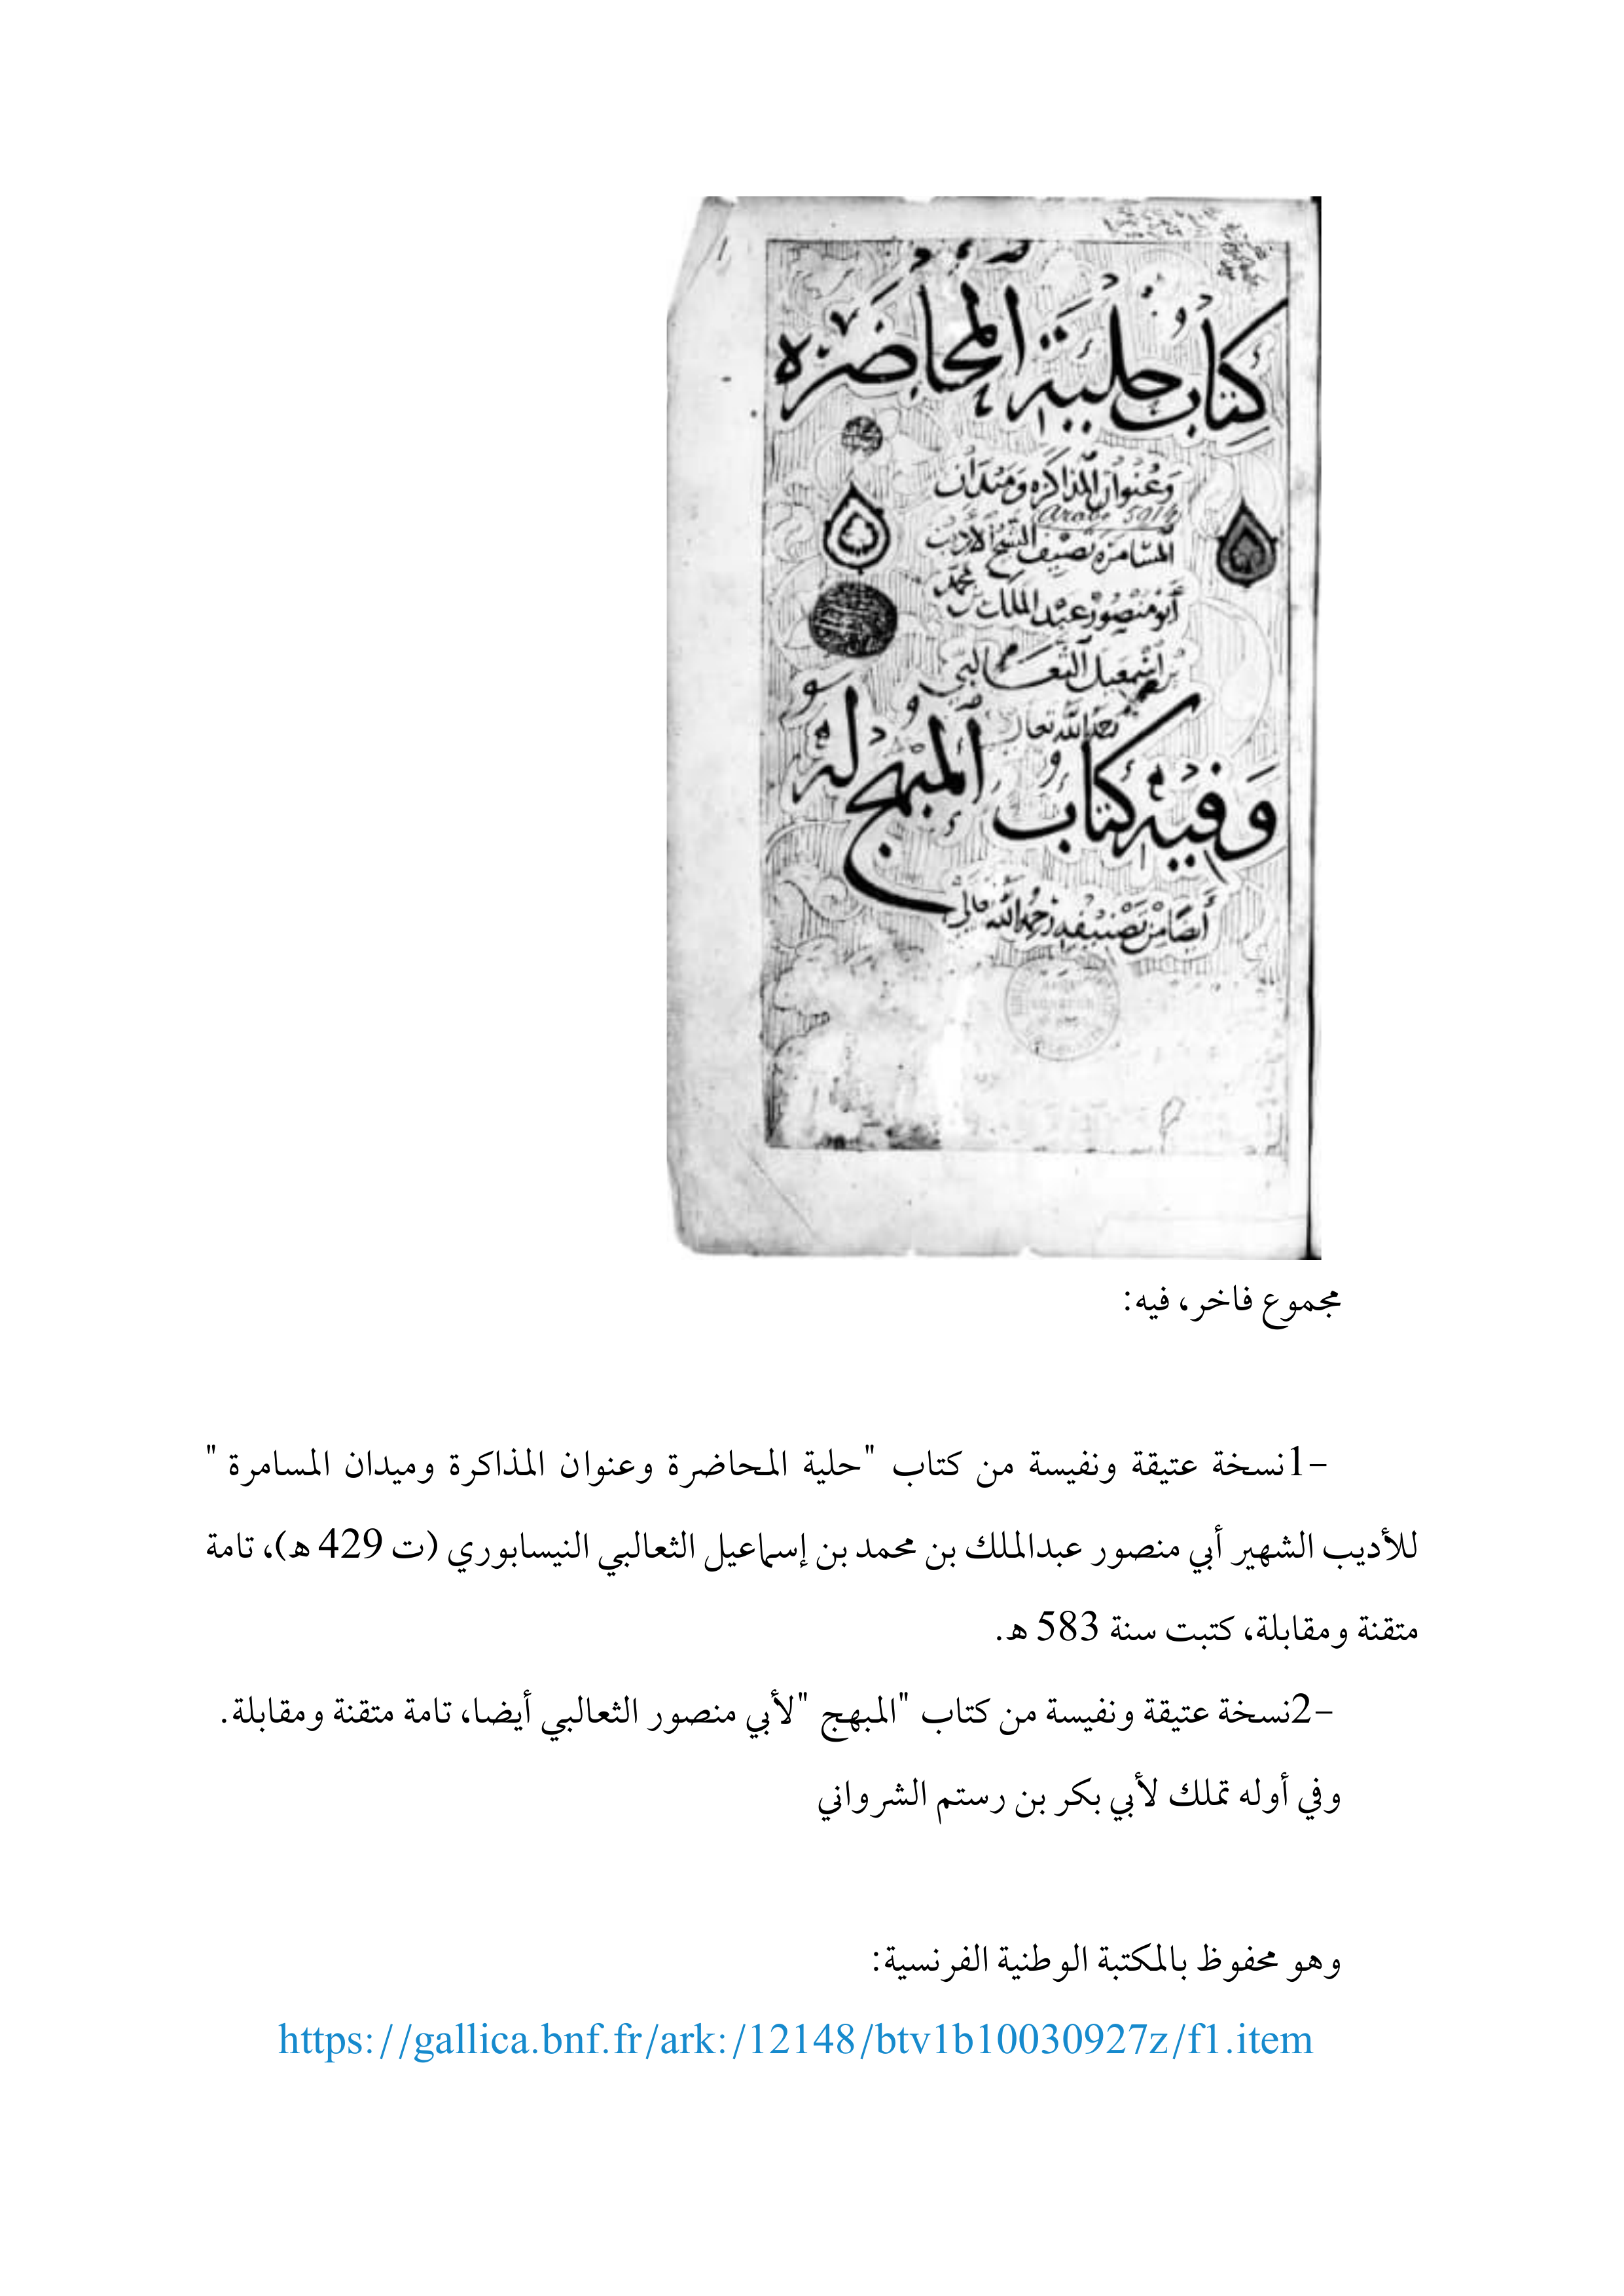 كتاب حلية المحاضره
وعنوان المذاكره وميدان
Arabe 5914
المسامره تصنيف الشيخ الاديب
أبو منصور عبد الملك بن محمد
بن اسمعيل الثعالبي
رحمه الله تعالى
وفيه كتاب المبهج له
أيضا من تصنيفه رحمه الله تعالى
مجموع فاخر، فيه:
-1نسخة عتيقة ونفيسة من كتاب "حلية المحاضرة وعنوان المذاكرة وميدان المسامرة "
للأديب الشهير أبي منصور عبدالملك بن محمد بن إسماعيل الثعالبي النيسابوري (ت 429 هـ)، تامة
متقنة ومقابلة، كتبت سنة 583 هـ.
-2نسخة عتيقة ونفيسة من كتاب "المبهج "لأبي منصور الثعالبي أيضا، تامة متقنة ومقابلة.
وفي أوله تملك لأبي بكر بن رستم الشرواني
وهو محفوظ بالمكتبة الوطنية الفرنسية:
https://gallica.bnf.fr/ark:/12148/btv1b10030927z/f1.item